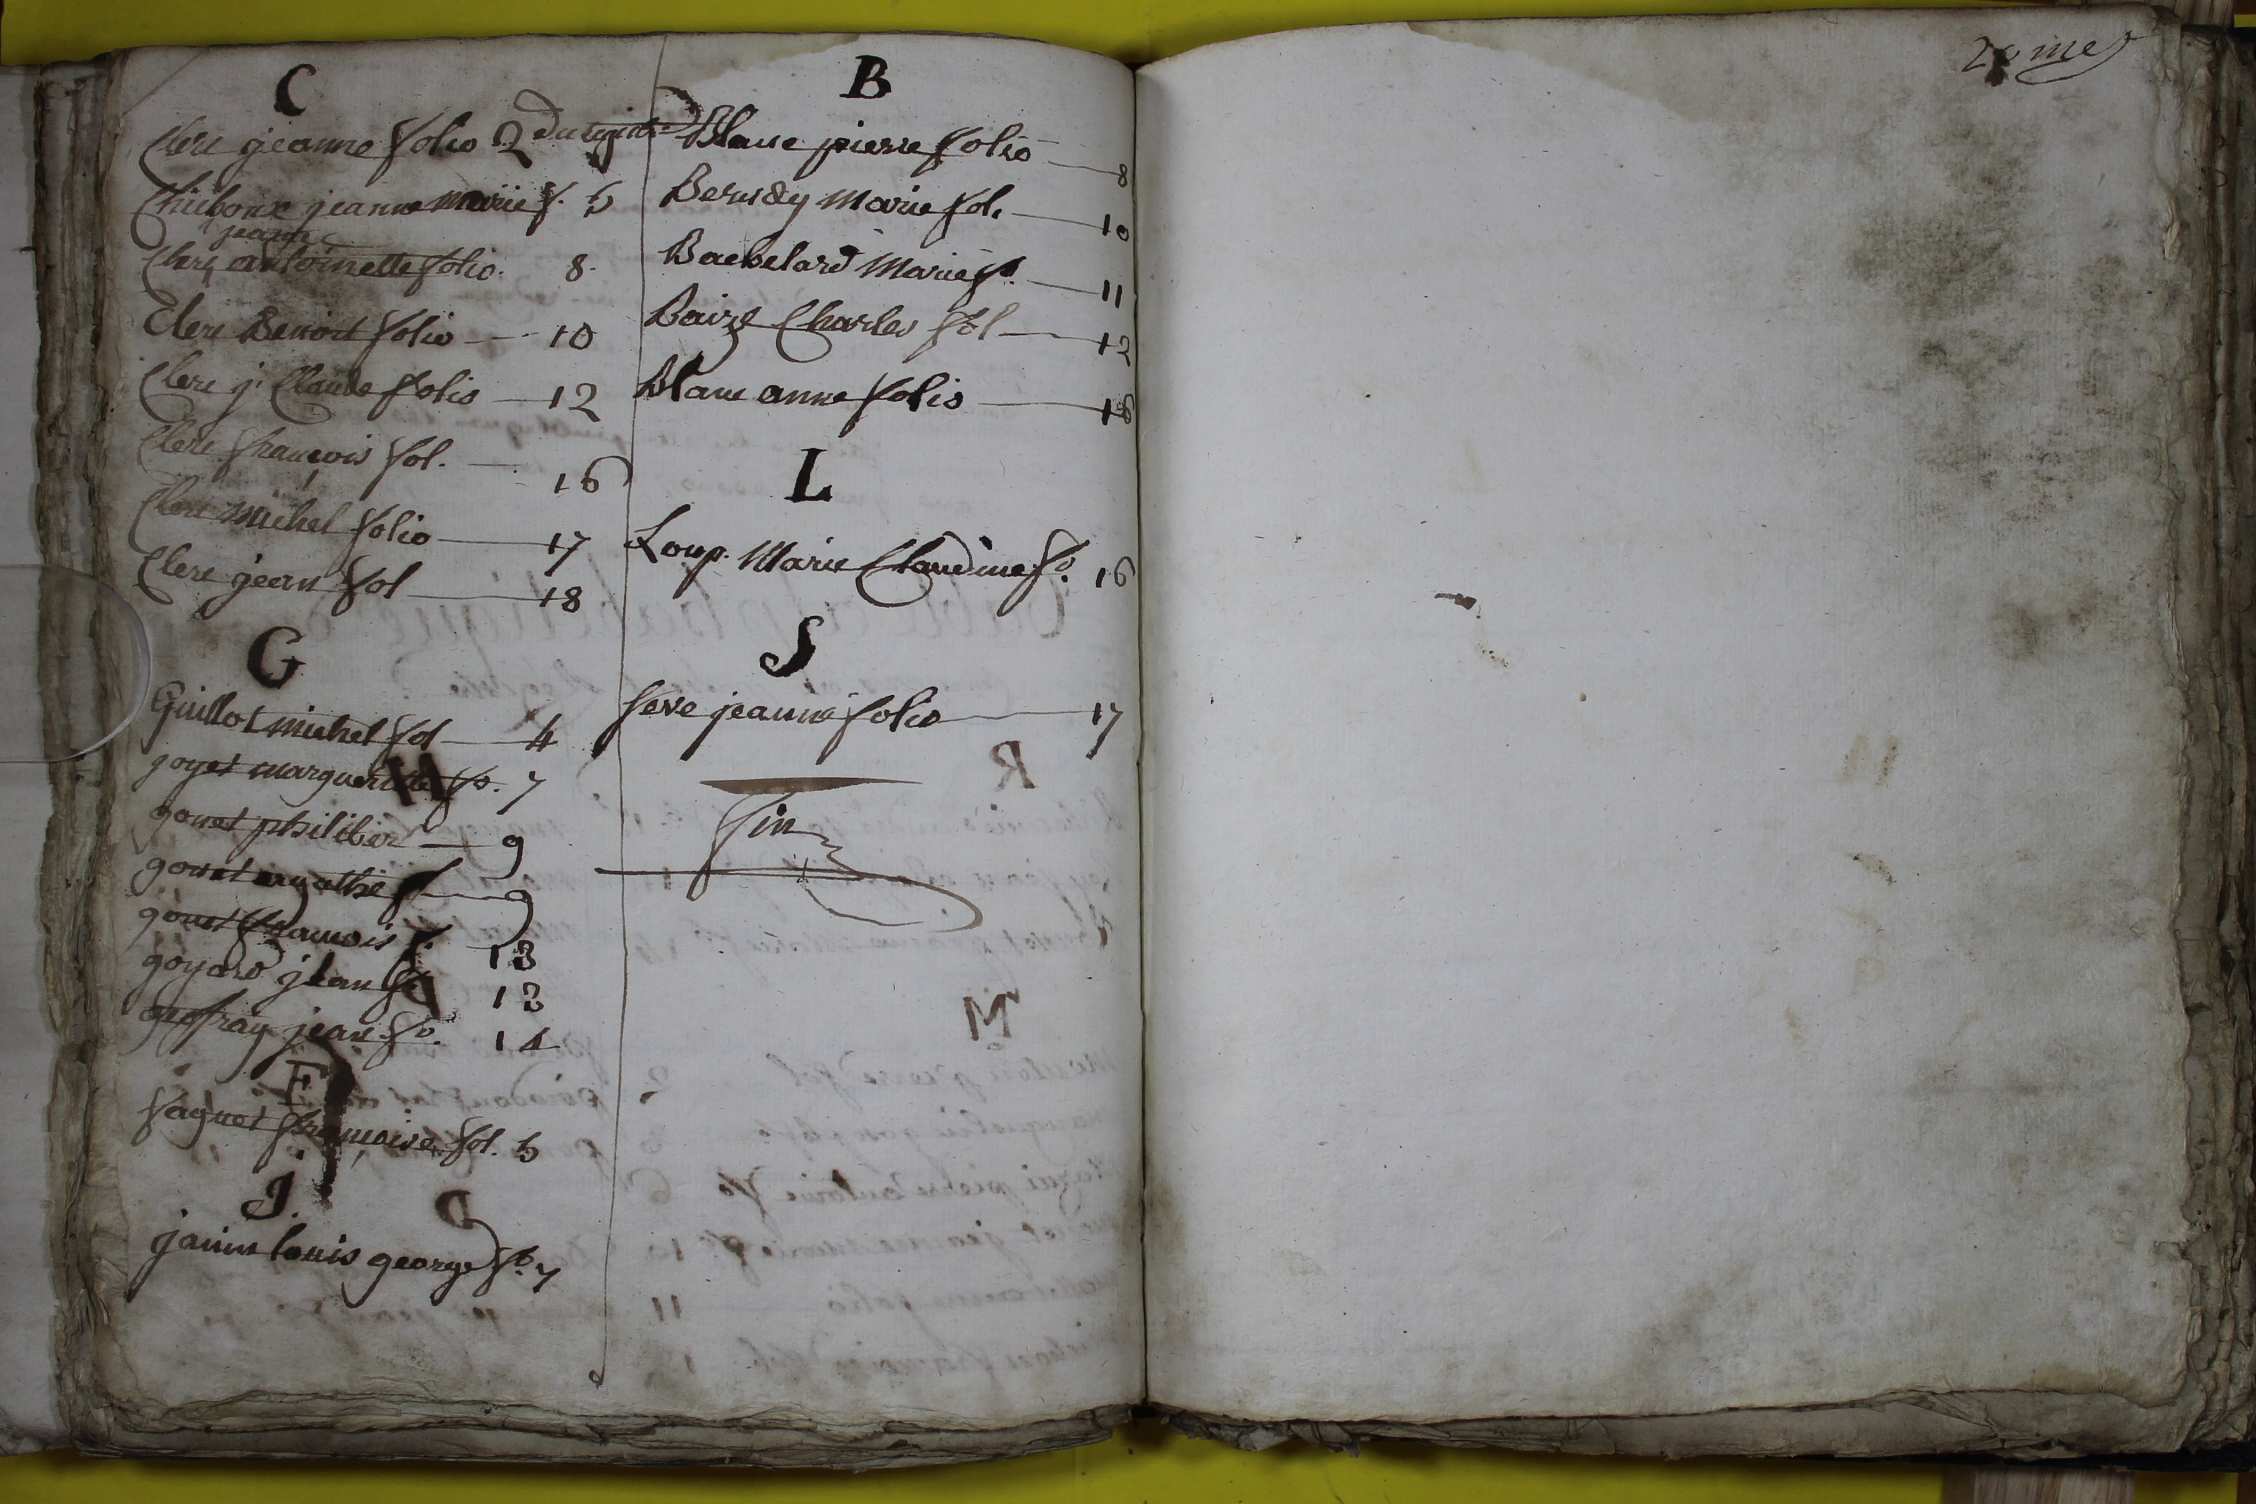 C
Clerc jeanne folio 2 du registre
Chiebonx jeanne marie f. 5
jeanne
Clerc antoinette folio. 8.
Clerc Benoit folio 10
Clerc j. Claude folio 12
Clerc francois fol. 16
Clerc michel folio 17
Clerc jean fol 18
G
Guillot michel fol 4
goyet margueritte fo. 7
gonet philiber 9
gonet agathe f 9
gonet francois f. 13
goyard jean fo 13
geofray jean fo. 14
F
faguet francoise fol. 5
J.
janin louis george fo. 7
B
Blanc pierre folio 8
Marie fol. 10
Bachelard Marie fo. 11
Charles fol 12
Blanc anne folio 18
L
Loup. Marie Claudine fo. 16
S
seve jeanne folio 17
fin
20me